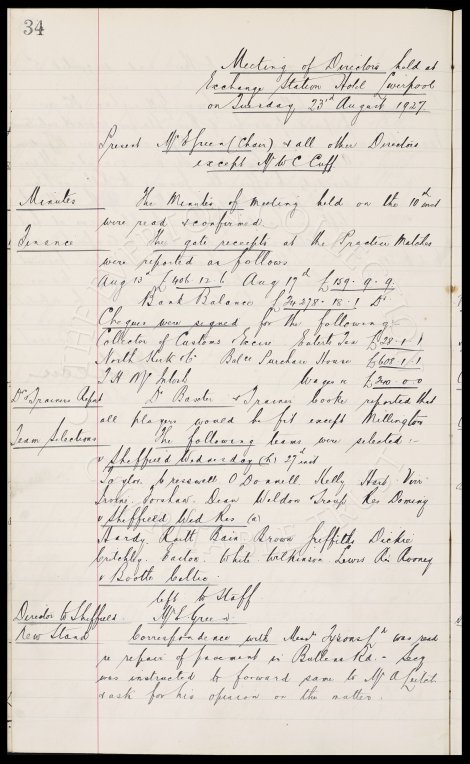 34
Meeting of Directors held at
Exchange Station Hotel Liverpool
on Tuesday 23rd August 1927
Present Mr E Green (Chair) & all other Directors
except Mr W C Cuff
Minutes The Minutes of meeting held on the 10th inst
were read & confirmed
Finance The gate receipts at the Practice Matches
were reported as follows
Aug 13th £406.12.6 Aug 17th £159.9.9
Bank Balance £24278.18.1 Dr
Cheques were signed for the following
Collector of Customs & Excise Entertts Tax £28.1.1
North Kirk & Co Balce Purchase House £608.1.1
T H McIntosh Wages a/c £300.0.0
Drs & Trainers Report Dr Baxter & Trainer Cooke reported that
all players would be fit except Millington
Team Selections The following teams were selected :-
v Sheffield Wednesday (h) 27th inst
Taylor Cresswell O'Donnell Kelly Hart Virr
Irvine Forshaw Dean Weldon Troup Res Dominy
v Sheffield Wed Res (a)
Hardy Raitt Bain Brown Griffiths Dickie
Critchley Easton White Wilkinson Lewis Res Rooney
v Bootle Celtic
left to Staff
Director to Sheffield Mr E Green
New Stand Correspondence with Messrs Tysons Ltd was read
re repair of pavement in Bullens Rd - Secy
was instructed to forward same to Mr A Leitch
& ask for his opinion on the matter.